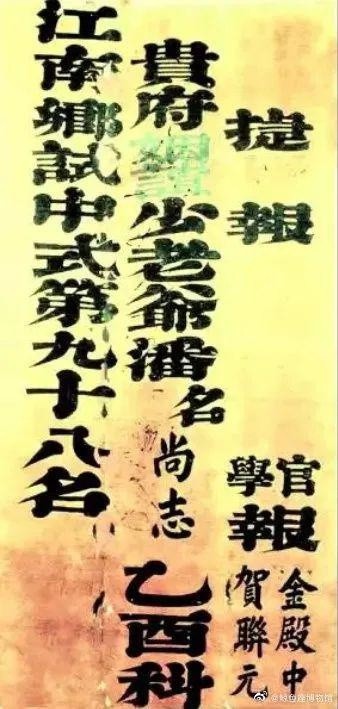 捷報
官學報
金殿中
賀聯元
貴府少老爺潘名尚志乙酉科
江南鄉試中式第九十八名
@鲸鱼座博物馆